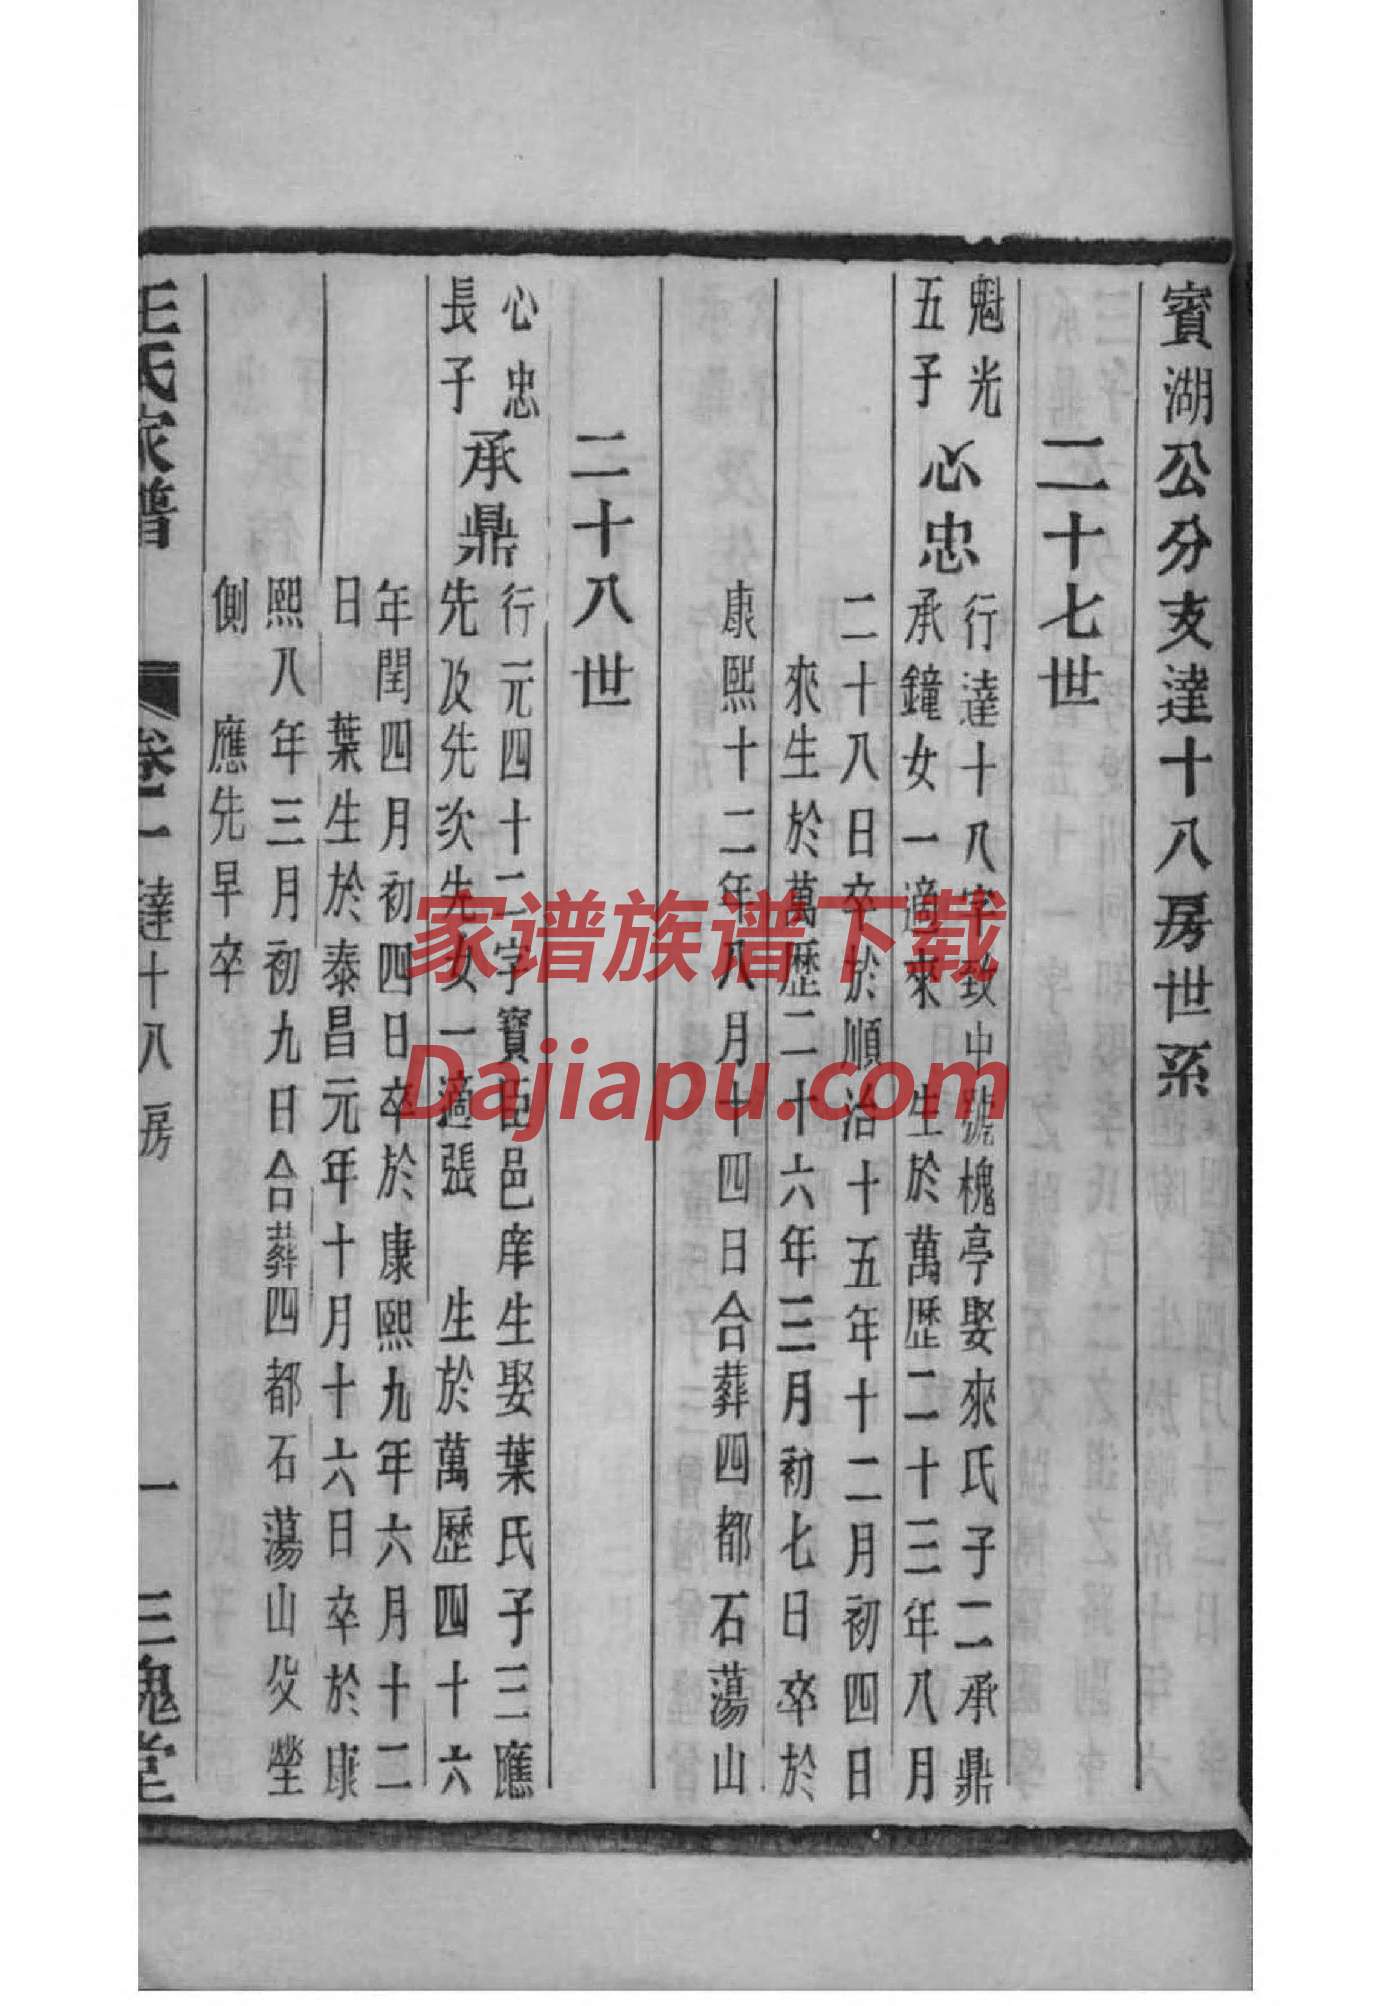 賓湖公分支達十八房世系
二十七世
魁光
五子
心忠
行達十八字致中號槐亭娶來氏子二承鼎
承鐘女一適來　生於萬歷二十三年八月
二十八日卒於順治十五年十二月初四日
來生於萬歷二十六年三月初七日卒於
康熙十二年八月十四日合葬四都石蕩山
二十八世
心忠
長子
承鼎
行元四十二字寶臣邑庠生娶葉氏子三應
先及先次先女一適張　生於萬歷四十六
年閏四月初四日卒於康熙九年六月十二
日　葉生於泰昌元年十月十六日卒於康
熙八年三月初九日合葬四都石蕩山父塋
側　應先早卒
王氏家譜　卷二　達十八房　一　三槐堂
家谱族谱下载
Dajiapu.com